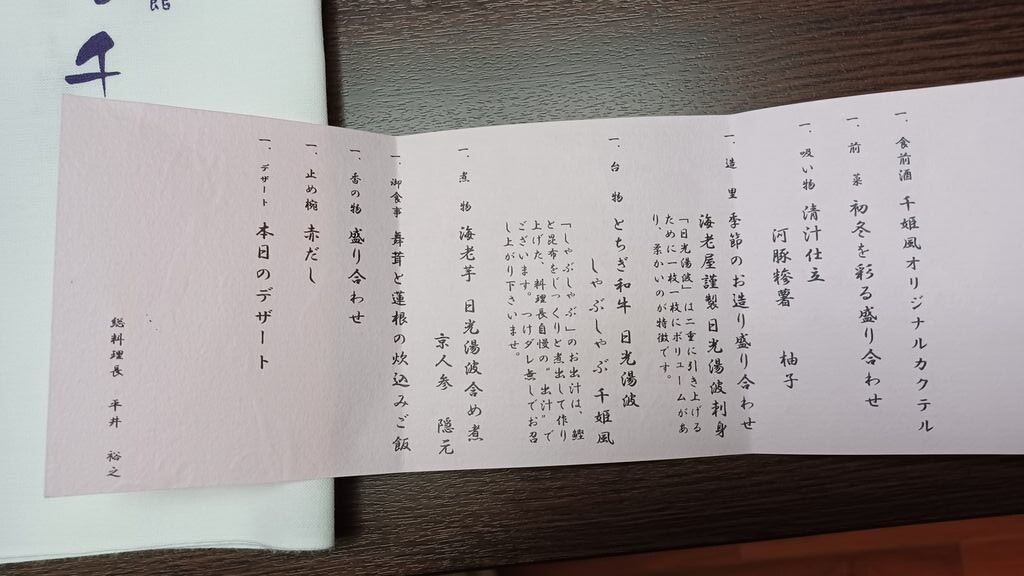 一、食前酒 千姫風オリジナルカクテル
一、前菜 初冬を彩る盛り合わせ
一、吸い物 清汁仕立
河豚糝薯 柚子
一、造里 季節のお造り盛り合わせ
海老屋謹製 日光湯波刺身
「日光湯波」は二重に引き上げる
ために一枚一枚にボリュームがあ
り、柔かいのが特徴です。
一、台物 とちぎ和牛 日光湯波
しゃぶしゃぶ 千姫風
「しゃぶしゃぶ」のお出汁は、鰹
と昆布をじっくりと煮出して作り
上げた、料理長自慢の“出汁”で
ございます。つけダレ無しでお召
し上がり下さいませ。
一、煮物 海老芋 日光湯波含め煮
京人参 隠元
一、御食事 舞茸と蓮根の炊込みご飯
一、香の物 盛り合わせ
一、止め椀 赤だし
一、デザート 本日のデザート
総料理長 平井 裕之
千